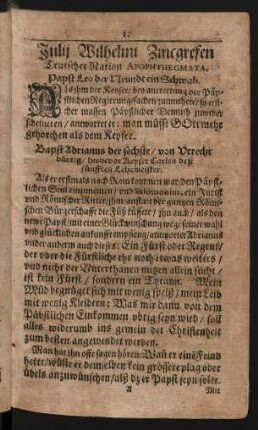 1.
Julij Wilhelmi Zincgrefen
Teutscher Nation APOPHTHEGMATA.
Papst Leo der Neundt ein Schwab.
Als ihm der Keyser, bey antrettung der Päp-
stischen Regierung sachen zumuthete, so etli-
cher massen Päpstlicher Demuth zuwider
scheineten, antwortet er: man müsse GOtt mehr
gehorchen als dem Keyser.
Bapst Adrianus der sechste, von Utrecht
bürtig, hiebevor Keyser Carlen deß
fünfften Lehrmeister.
Als er erstmals nach Rom kommen war, den Päpst-
lichen Sitz einzunemen, und
und Römischer Ritter, ihm anstatt der gantzen Römi-
schen Bürgerschafft die Füß küssete, ihn auch, als den
newen Papst, mit einer Glückwünschung wegen seiner wahl
und glücklichen ankunfft empfieng, antwortet Adrianus
under anderm auch dieses: Ein Fürst oder Regent,
der uber die Fürstliche ehr noch etwas weiters,
nicht der Underthanen nutzen allein sucht,
ist kein Fürst, sondern ein Tyrann. Mein
Mund begnügt sich mit wenig speiß, mein Leib
mit wenig Kleidern: Was mir dann von dem
Päbstlichen Einkommen ubrig seyn wird, soll
alles widerumb ins gemein der Christenheit
zum besten angewendet werden.
Man hat ihn offt sagen hören: Wañ er eine Feind
hette, wüste er demselben kein grössere plag oder
übels anzuwünschen, als dz er Papst seyn solte.
A
Mit